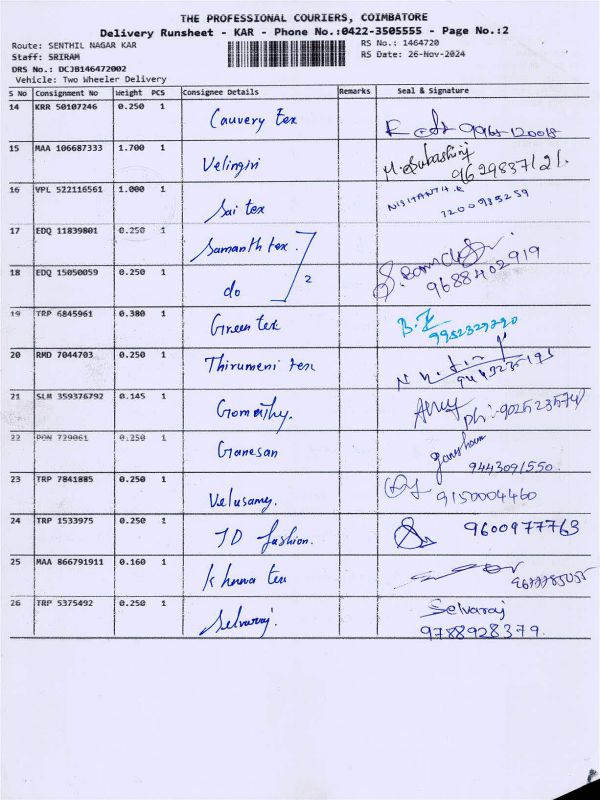 THE PROFESSIONAL COURIERS, COIMBATORE
Delivery Runsheet - KAR - Phone No.:0422-3505555 - Page No.:2
Route: SENTHIL NAGAR KAR
RS No.: 1464720
Staff: SRIRAM
RS Date: 26-Nov-2024
DRS No.: DCJB146472002
Vehicle: Two Wheeler Delivery
S No Consignment No Weight PCS Consignee Details Remarks Seal & Signature
14 KRR 50107246 0.250 1 Cauvery tex
15 MAA 106687333 1.700 1 Velingiri M. Subashini
16 VPL 522116561 1.000 1 Sai tex NISHANTH.R
17 EDQ 11839801 0.250 1 Samanth tex.
18 EDQ 15050059 0.250 1 do 2 9688402919
19 TRP 6845961 0.380 1 Green tex 9952329290
20 RMD 7044703 0.250 1 Thirumeni tex
21 SLM 359376792 0.145 1 Gomathy. ph:-
22 PON 729061 0.250 1 Ganesan 9443091550.
23 TRP 7841885 0.250 1 Velusamy. 9150004460
24 TRP 1533975 0.250 1 JD fashion. 9600977763
25 MAA 866791911 0.160 1
26 TRP 5375492 0.250 1 Selvaraj. Selvaraj
9788928379.